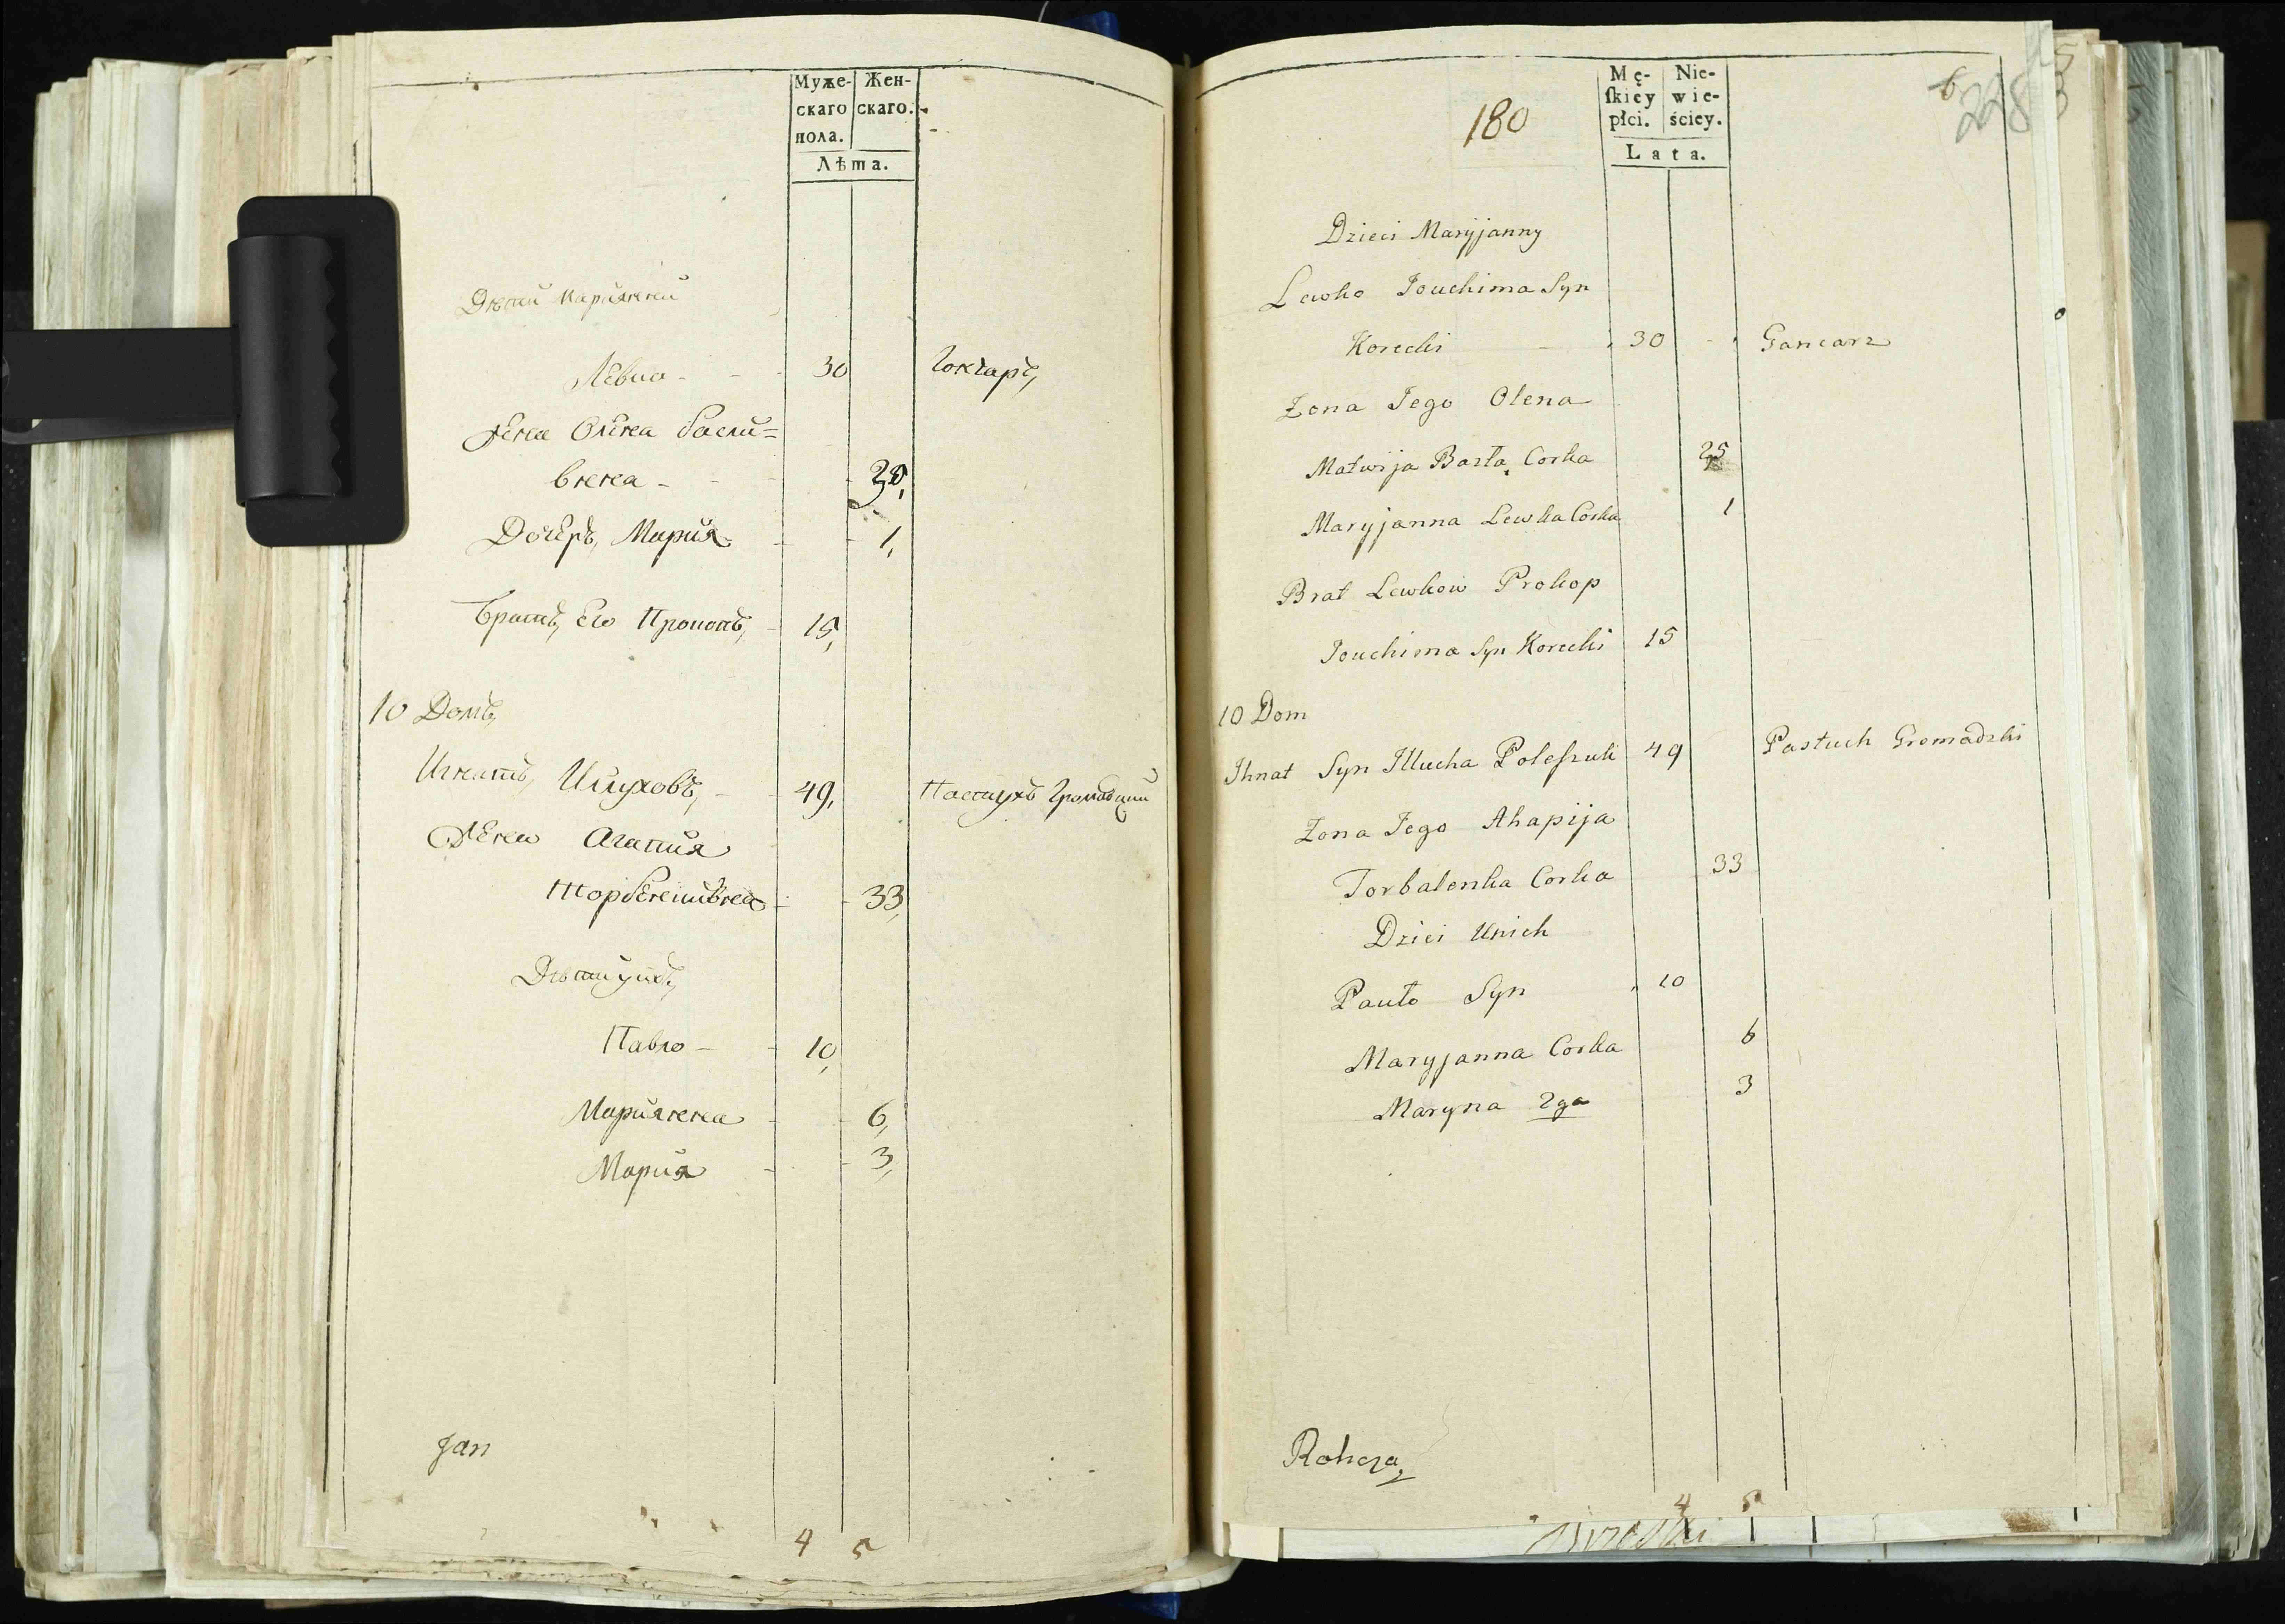 Муже- Жен-
скаго скаго.
пола.
Лѣта.
Дѣти Марiянни
Левко - - - 30 Гончаръ,
Жена Олена Васи-
вненa - - 30,
Дочеръ, Мария - - 1,
Братъ, Его Прокопъ, - 15,
10 Домъ,
Игнатъ, Илуховъ, - - 49, Пастухъ Громадский
Жена Агапия
- - 33,
Дѣти у нихъ,
Павло - - 10,
Марiянна - - 6,
Мария - - 3,
Jan
4 5
180
Mę- Nie-
ſkiey wie-
płci. ściey.
Lata.
Dzieci Maryjanny
Lewko Jouchima Syn
Korecki - 30 - Gancarz
Zona Jego Olena
Matwija Basta Corka 25
Maryjanna Lewka Corka 1
Brat Lewkow Prokop
Jouchima Syn Korecki 15
10 Dom
Ihnat Syn Illucha Poleſzuk 49 Pastuch Gromadzki
Zona Jego Ahapija
Torbalenka Corka 33
Dzieci Unich
Pauło Syn 10
Maryjanna Corka 6
Maryna 2ga 3
Rohoza,
4 5